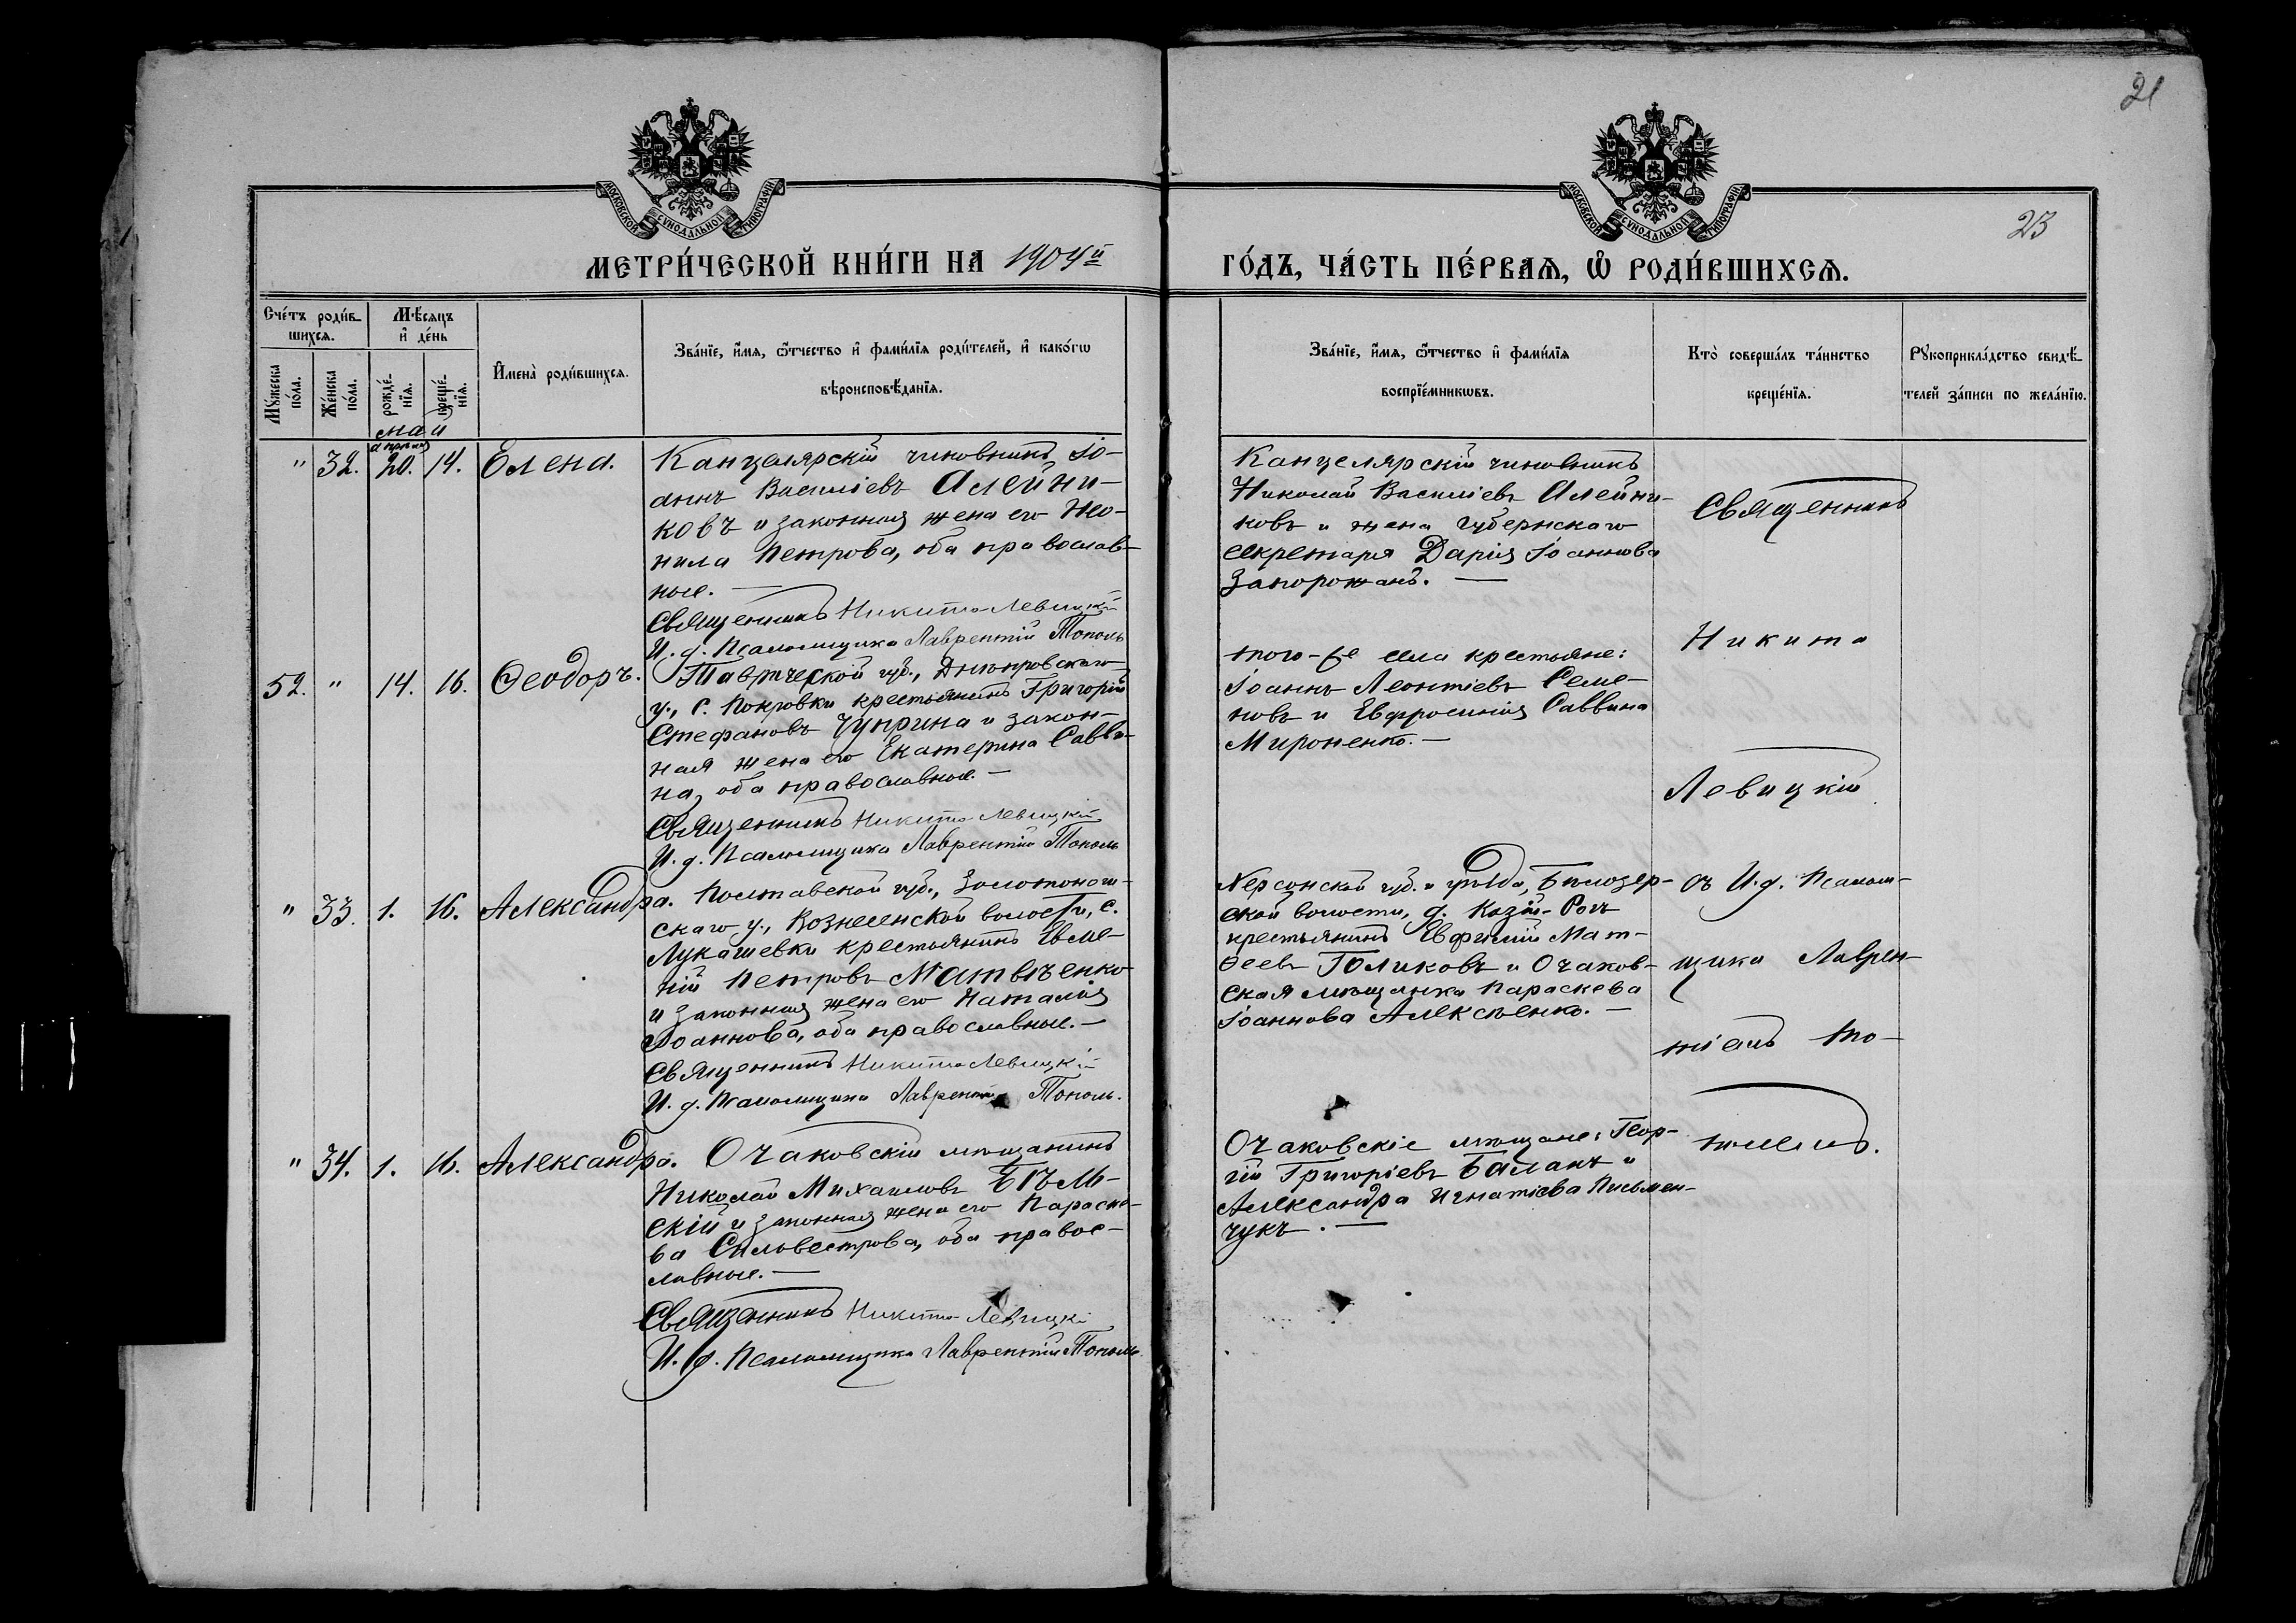 21
23
МОСКОВСКОЙ СѴНОДАЛЬНОЙ ТИПОГРАФІИ
МОСКОВСКОЙ СѴНОДАЛЬНОЙ ТИПОГРАФІИ
МЕТРИ́ЧЕСКОЙ КНИ́ГИ НА 1904й
ГО́ДЪ, ЧА́СТЬ ПЕ́РВАѦ, Ѡ҆ РОДИ́ВШИХСѦ.
Сче́тъ роди́в-
шихсѧ.
Мꙋ́жеска по́ла.
Же́нска по́ла.
Мѣ́сѧцъ
и҆ де́нь
рожде́-
нїѧ.
креще́-
нїѧ.
И҆мена̀ роди́вшихсѧ.
Зва́нїе, и҆́мѧ, ѻ҆́тчество и҆ фами́лїѧ роди́телей, и҆ како́гѡ
вѣроисповѣ́данїѧ.
Зва́нїе, и҆́мѧ, ѻ҆́тчество и҆ фами́лїѧ
воспрїе́мникѡвъ.
Кто̀ соверша́лъ та́инство
креще́нїѧ.
Рꙋкоприкла́дство свидѣ́-
телей за́писи по жела́нїю.
май
апрѣля
" 32. 20. 14. Елена.
Канцелярскій чиновникъ Іо-
аннъ Василіевъ Алейни-
ковъ и законная жена его Нео-
нила Петрова, оба православ-
ные. —
Священникъ Никита Левицкій
И. д. Псаломщика Лаврентій Тополь
Канцелярскій чиновникъ
Николай Василіевъ Алейни-
ковъ и жена губернскаго
секретаря Дарія Іоаннова
Запорожанъ. —
Священникъ
Никита
Левицкій
съ И. д. Псалом-
щика Лаврен-
тіемъ То-
полемъ.
52. " 14. 16. Ѳеодоръ.
Таврической губ., Днѣпровскаго
у., с. Покровки крестьянинъ Григорій
Стефановъ Чуприна и закон-
ная жена его Екатерина Савви-
на, оба православные. —
Священникъ Никита Левицкій
И. д. Псаломщика Лаврентій Тополь
того-же села крестьяне:
Іоаннъ Леонтіевъ Семе-
новъ и Евфросинія Саввина
Мироненко. —
" 33. 1. 16. Александра.
Полтавской губ., Золотонош-
скаго у., Вознесенской волости, с.
Лукашевки крестьянинъ Евме-
ній Петровъ Матвѣенко
и законная жена его Наталія
Іоаннова, оба православные. —
Священникъ Никита Левицкій
И. д. Псаломщика Лаврентій Тополь.
Херсонской губ. и уѣзда, Бѣлозер-
ской волости, д. Козій-Рогъ
крестьянинъ Евфимій Мат-
ѳеевъ Голиковъ и Очаков-
ская мѣщанка Параскева
Іоаннова Алексѣенко. —
" 34. 1. 16. Александра.
Очаковскій мѣщанинъ
Николай Михаиловъ Бѣль-
скій и законная жена его Параске-
ва Сильвестрова, оба правос-
лавные. —
Священникъ Никита Левицкій
И. д. Псаломщика Лаврентій Тополь
Очаковскіе мѣщане: Геор-
гій Григоріевъ Баланъ и
Александра Игнатіева Письмен-
чукъ. —